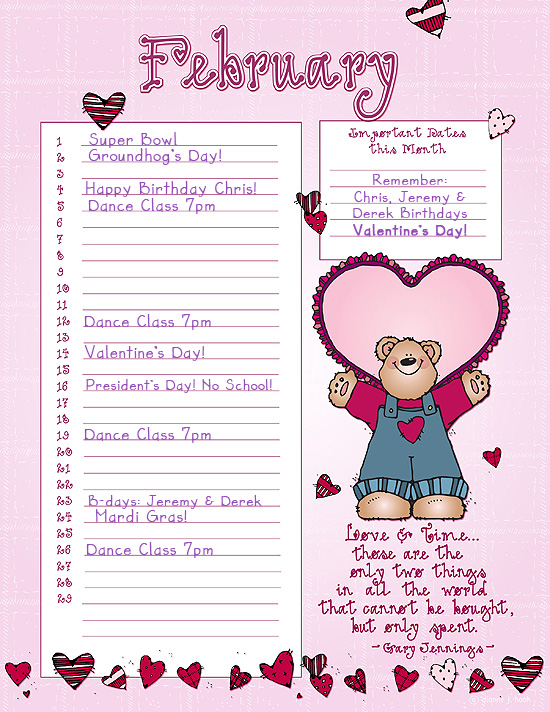 February
1 Super Bowl
2 Groundhog's Day!
3
4 Happy Birthday Chris!
5 Dance Class 7pm
6
7
8
9
10
11
12 Dance Class 7pm
13
14 Valentine's Day!
15
16 President's Day! No School!
17
18
19 Dance Class 7pm
20
21
22
23 B-days: Jeremy & Derek
24 Mardi Gras!
25
26 Dance Class 7pm
27
28
29
Important Dates
this Month
Remember:
Chris, Jeremy &
Derek Birthdays
Valentine's Day!
Love & Time...
those are the
only two things
in all the world
that cannot be bought,
but only spent.
- Gary Jennings -